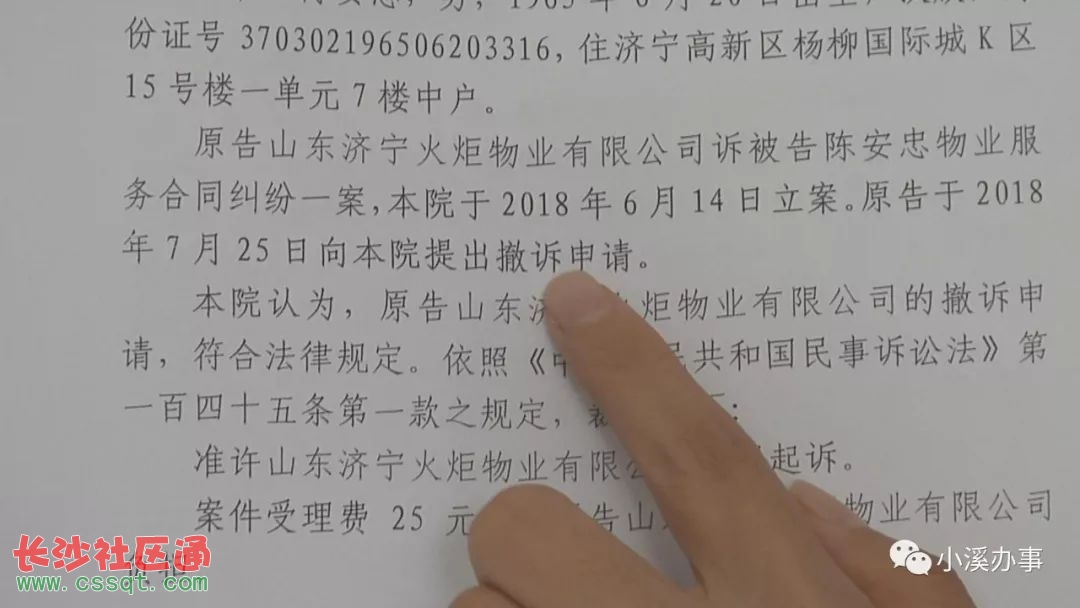 份证号 370302196506203316, 住济宁高新区杨柳国际城 K 区
15 号楼一单元 7 楼中户。
原告山东济宁火炬物业有限公司诉被告陈安忠物业服
务合同纠纷一案, 本院于 2018 年 6 月 14 日立案。原告于 2018
年 7 月 25 日向本院提出撤诉申请。
本院认为, 原告山东济 火炬物业有限公司的撤诉申
请, 符合法律规定。依照《中 民共和国民事诉讼法》第
一百四十五条第一款之规定, 裁 :
准许山东济宁火炬物业有限公 起诉。
案件受理费 25 元 告山 物业有限公司
长沙社区通
www.cssqt.com
小溪办事